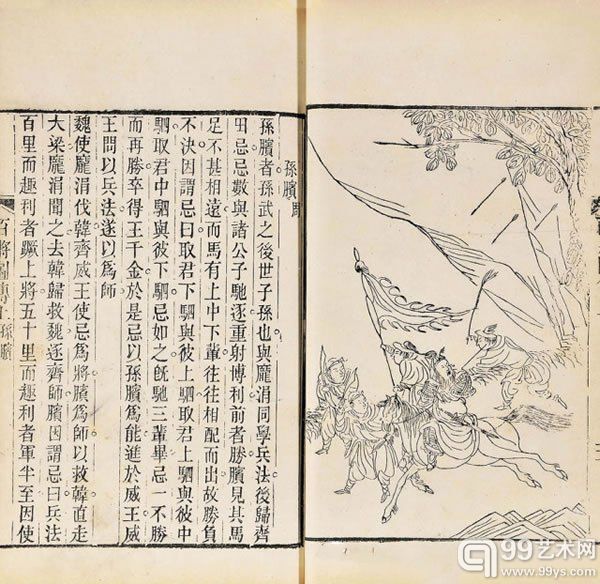 孫臏圖
孫臏者孫武之後世子孫也與龐涓同學兵法後歸齊
田忌忌數與諸公子馳逐重射博利前者勝臏見其馬
足不甚相遠而馬有上中下輩往往相配而出故勝負
不決因謂忌曰取君下駟與彼上駟取君上駟與彼中
駟取君中駟與彼下駟忌如之旣馳三輩畢忌一不勝
而再勝卒得王千金於是忌以孫臏爲能進於威王威
王問以兵法遂以爲師
魏使龐涓伐韓齊威王使忌爲將臏爲師以救韓直走
大梁龐涓聞之去韓歸救魏逐齊師臏因謂忌曰兵法
百里而趣利者蹶上將五十里而趣利者軍半至因使
百將圖傳上 孫臏
99艺术网
www.99ys.com